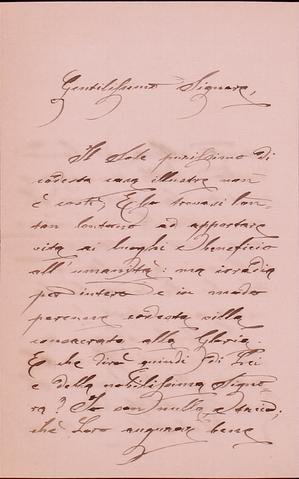 Gentilissimo Signore,
Il Sole purissimo di
codesta casa illustre non
è costì. E lo trovasi lon-
tan lontano ad apportare
vita ai luoghi e beneficio
all'umanità: ma irradia
per intero e in modo
perenne codesta villa
consacrata alla Gloria.
Ed che dirò quindi di Lei
e della nobilissima Signo-
ra? Io son nulla, e
che Loro augurar bene